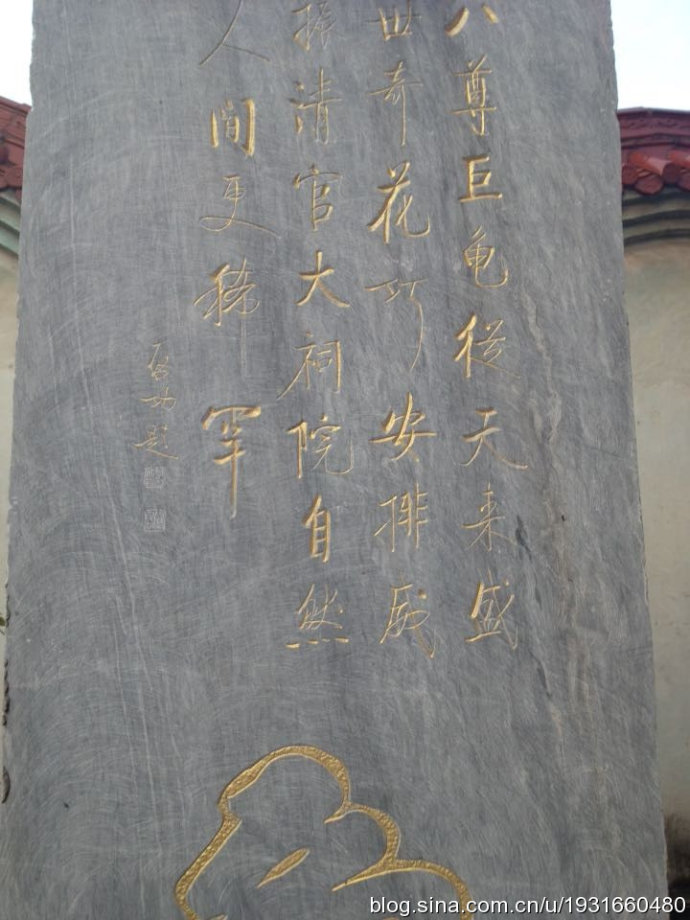 八尊巨龟从天来盛
世奇花巧安排威
振清官大祠院自然
人间更稀罕
启功题
blog.sina.com.cn/u/1931660480